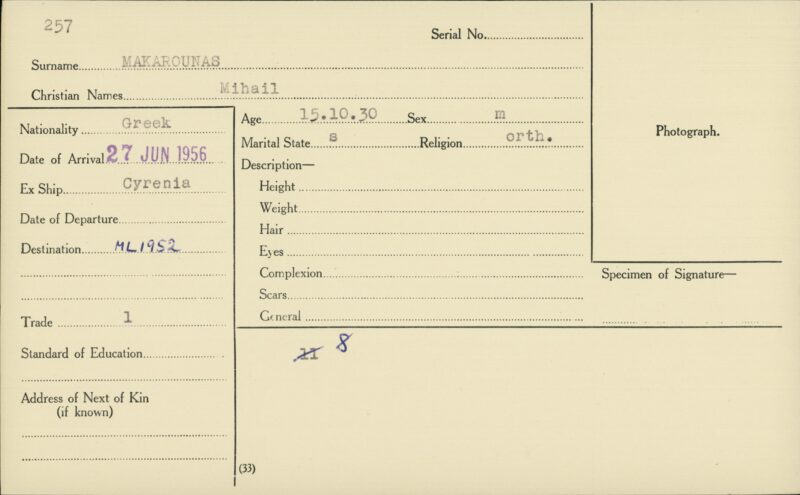 257
Serial No.
Surname MAKAROUNAS
Christian Names Mihail
Nationality Greek
Date of Arrival 27 JUN 1956
Ex Ship Cyrenia
Date of Departure
Destination ML1952
Trade 1
Standard of Education
Address of Next of Kin
(if known)
Age 15.10.30 Sex m
Marital State s Religion orth.
Description—
Height
Weight
Hair
Eyes
Complexion
Scars
General
11 8
(33)
Photograph.
Specimen of Signature—